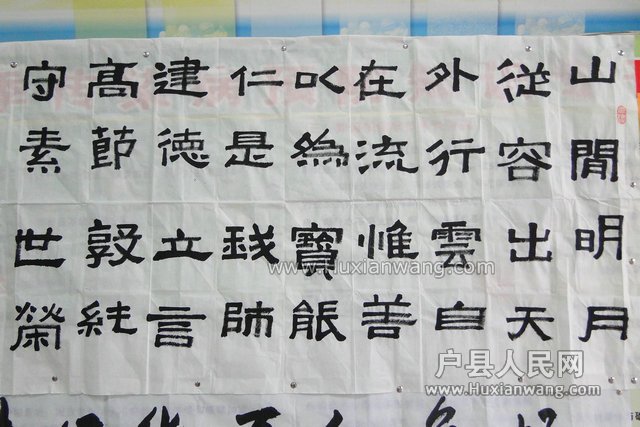 山閒明月
從容出天
外行雲自
在流惟善
以為寶能
仁是我師
建德立言
髙節敦純
守素世榮
www.huxianwang.com
户县人民网
www.Huxianwang.com